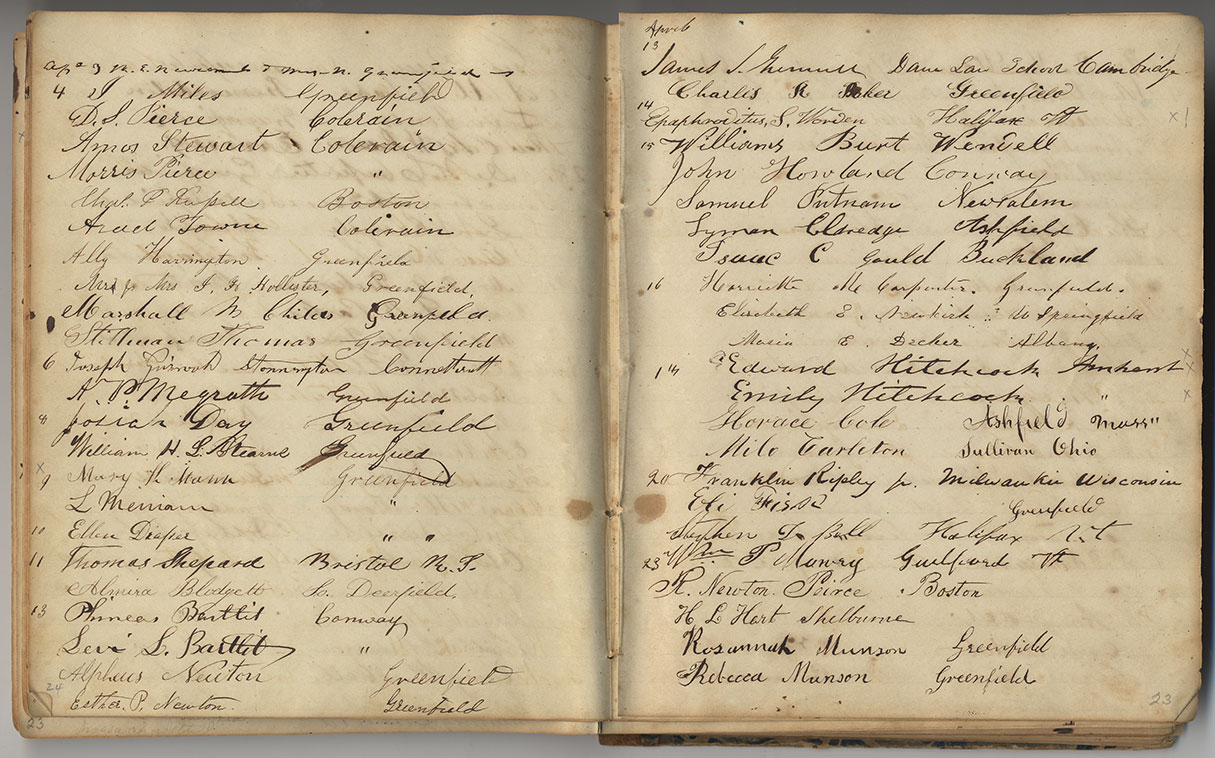 Ap 3 N. E. Newcomb & Mrs. N. Greenfield
4 J Miles Greenfield
D. S. Pierce Colerain
Amos Stewart Colerain
Morris Pierce "
Chas. P. Russell Boston
Arad Towne Colerain
Ally Harrington. Greenfield
Mr & Mrs J. H. Hollister, Greenfield,
Marshall N Childs Greenfield.
Stillman Thomas Greenfield
6 Joseph Stonnington Connetcutt
A. P. Megrath Greenfield
8 Josiah Day Greenfield
William H. L. Stearns Greenfield
9 Mary H. Mann Greenfield
L Merriam "
10 Ellen Draper " "
11 Thomas Shepard Bristol R. I.
Almira Blodgett So. Deerfield,
13 Phineas Bartlit Conway
Levi L. Bartlit "
Alpheus Newton Greenfield
Esther. P. Newton. Greenfield
24
23
April
13
James S. Dane Law School Cambridge
Charles R Greenfield
14
Epaphroditus, S. Worden Halifax Vt
15 Williams Burt Wendell
John Howland Conway
Samuel Putnam New Salem
Lyman Eldredge Ashfield
Isaac C Gould Buckland
16 Harriette M Carpenter. Greenfield.
Elizabeth E. Newkirk W Springfield
Maria E. Decker Albany.
Edward Hitchcock Amherst
Emily Hitchcock "
Horace Cole Ashfield Mass"
Milo Carleton Sullivan Ohio
20 Franklin Ripley jr. Milwaukie Wisconsin
Eli Fisk Greenfield
Stephen T. Bell Halifax Vt
23 Wm P Mowry Guilford Vt
R. Newton Peirce Boston
H L Hart Shelburne
Rosannah Munson Greenfield
Rebecca Munson Greenfield
23